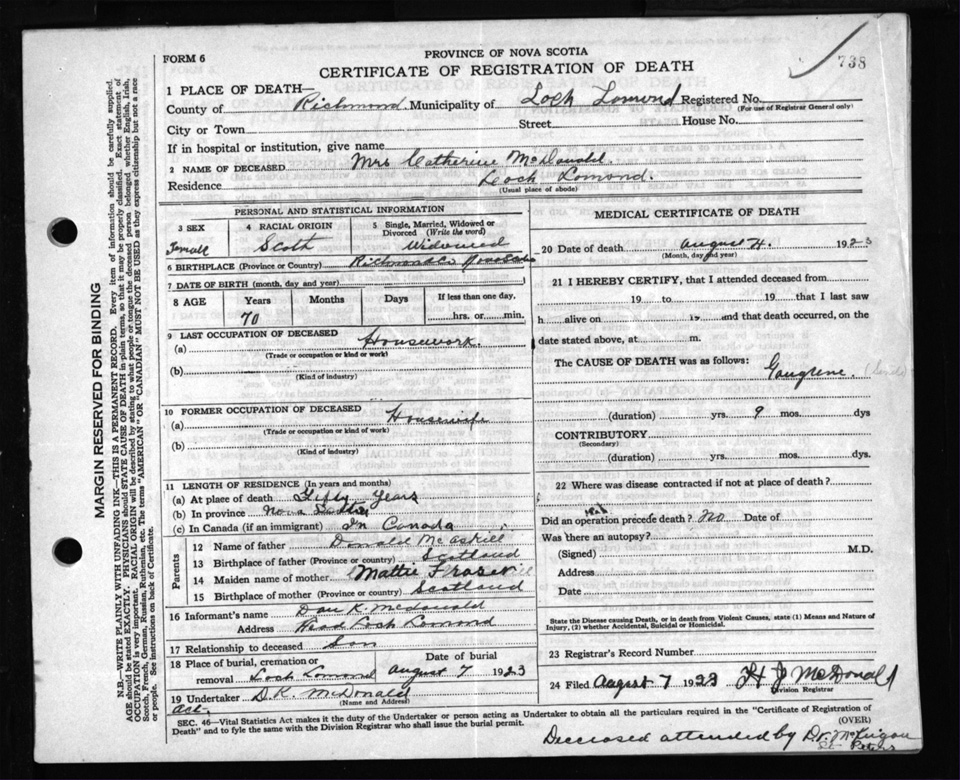 738
FORM 6
PROVINCE OF NOVA SCOTIA
CERTIFICATE OF REGISTRATION OF DEATH
1 PLACE OF DEATH—
County of Richmond Municipality of Loch Lomond Registered No.
(For use of Registrar General only)
City or Town Street House No.
If in hospital or institution, give name
2 NAME OF DECEASED Mrs Catherine McDonald.
Residence Loch Lomond.
(Usual place of abode)
PERSONAL AND STATISTICAL INFORMATION
3 SEX 4 RACIAL ORIGIN 5 Single, Married, Widowed or Divorced (Write the word)
Female Scoth Widowed
6 BIRTHPLACE (Province or Country) Richmond Co Nova Scotia
7 DATE OF BIRTH (month, day and year)
8 AGE Years Months Days If less than one day,
70 hrs. or min.
9 LAST OCCUPATION OF DECEASED
(a) Housework.
(Trade or occupation or kind or work)
(b)
(Kind of industry)
10 FORMER OCCUPATION OF DECEASED
(a) Housewife
(Trade or occupation or kind of work)
(b)
(Kind of industry)
11 LENGTH OF RESIDENCE (In years and months)
(a) At place of death Fifty Years
(b) In province Nova Scotia
(c) In Canada (if an immigrant) In Canada
Parents
12 Name of father Donald McAskill
13 Birthplace of father (Province or country) Scotland
14 Maiden name of mother Mattie Fraser
15 Birthplace of mother (Province or country) Scotland
16 Informant's name Dan K. McDonald
Address Head Loch Lomond
17 Relationship to deceased Son
18 Place of burial, cremation or removal Loch Lomond
Date of burial August 7 1923
19 Undertaker D. K. McDonald
(Name and Address)
act.
MEDICAL CERTIFICATE OF DEATH
20 Date of death August 4. 1923
(Month, day and year)
21 I HEREBY CERTIFY, that I attended deceased from
19 to 19 that I last saw
h alive on 19 and that death occurred, on
date stated above, at m.
The CAUSE OF DEATH was as follows:
Gangrene.
(duration) yrs. 9 mos. dys
CONTRIBUTORY
(Secondary)
(duration) yrs. mos. dys
22 Where was disease contracted if not at place of death?
Did an operation precede death? No Date of
Was there an autopsy?
(Signed) M.D.
Address
Date
State the Disease causing Death, or in death from Violent Causes, state (1) Means and Nature of
Injury, (2) whether Accidental, Suicidal or Homicidal.
23 Registrar's Record Number
24 Filed August 7 1923 H J McDonald
Division Registrar
SEC. 46—Vital Statistics Act makes it the duty of the Undertaker or person acting as Undertaker to obtain all the particulars required in the "Certificate of Registration of
Death" and to fyle the same with the Division Registrar who shall issue the burial permit.
(OVER)
Deceased attended by Dr.
St. Peters
MARGIN RESERVED FOR BINDING
N.B.—WRITE PLAINLY WITH UNFADING INK—THIS IS A PERMANENT RECORD. Every item of information should be carefully supplied.
AGE should be stated EXACTLY. PHYSICIANS should STATE CAUSE OF DEATH in plain terms, so that it may be properly classified. Exact statement of
OCCUPATION is very important. RACIAL ORIGIN will be described by stating to what people or tongue the deceased person belonged, whether English, Irish,
Scotch, French, German, Russian, Ruthenian, etc. The terms "AMERICAN" OR "CANADIAN" MUST NOT BE USED as they express citizenship but not a race
or people. See instructions on back of Certificate.